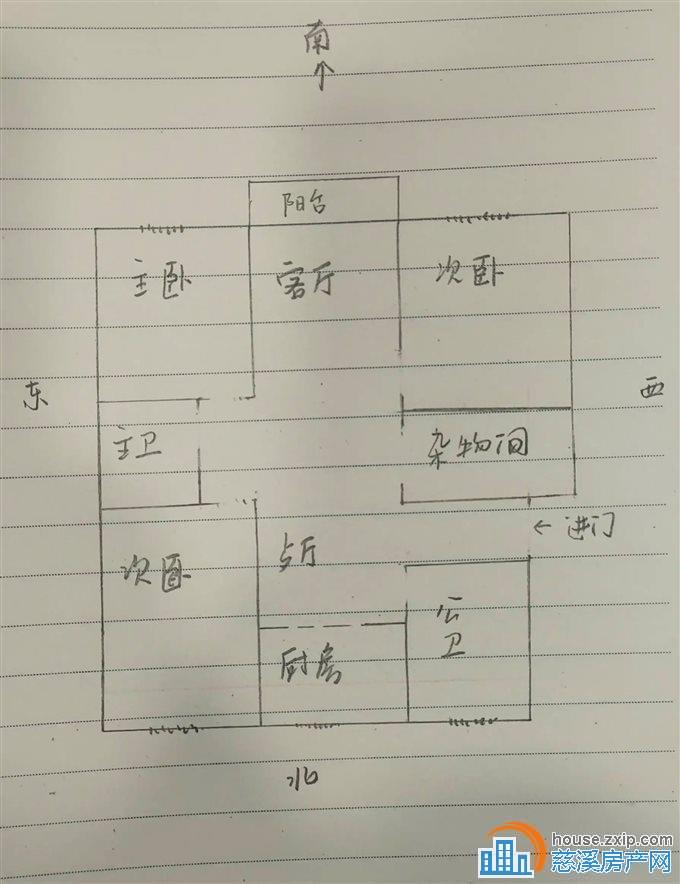 南
↑
阳台
主卧
客厅
次卧
东
西
主卫
杂物间
← 进门
次卧
与厅
公卫
厨房
北
house.zxip.com
慈溪房产网